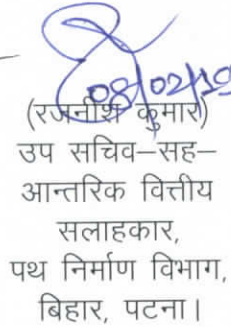 08/02/19
(रजनीश कुमार)
उप सचिव–सह–
आन्तरिक वित्तीय
सलाहकार,
पथ निर्माण विभाग,
बिहार, पटना।